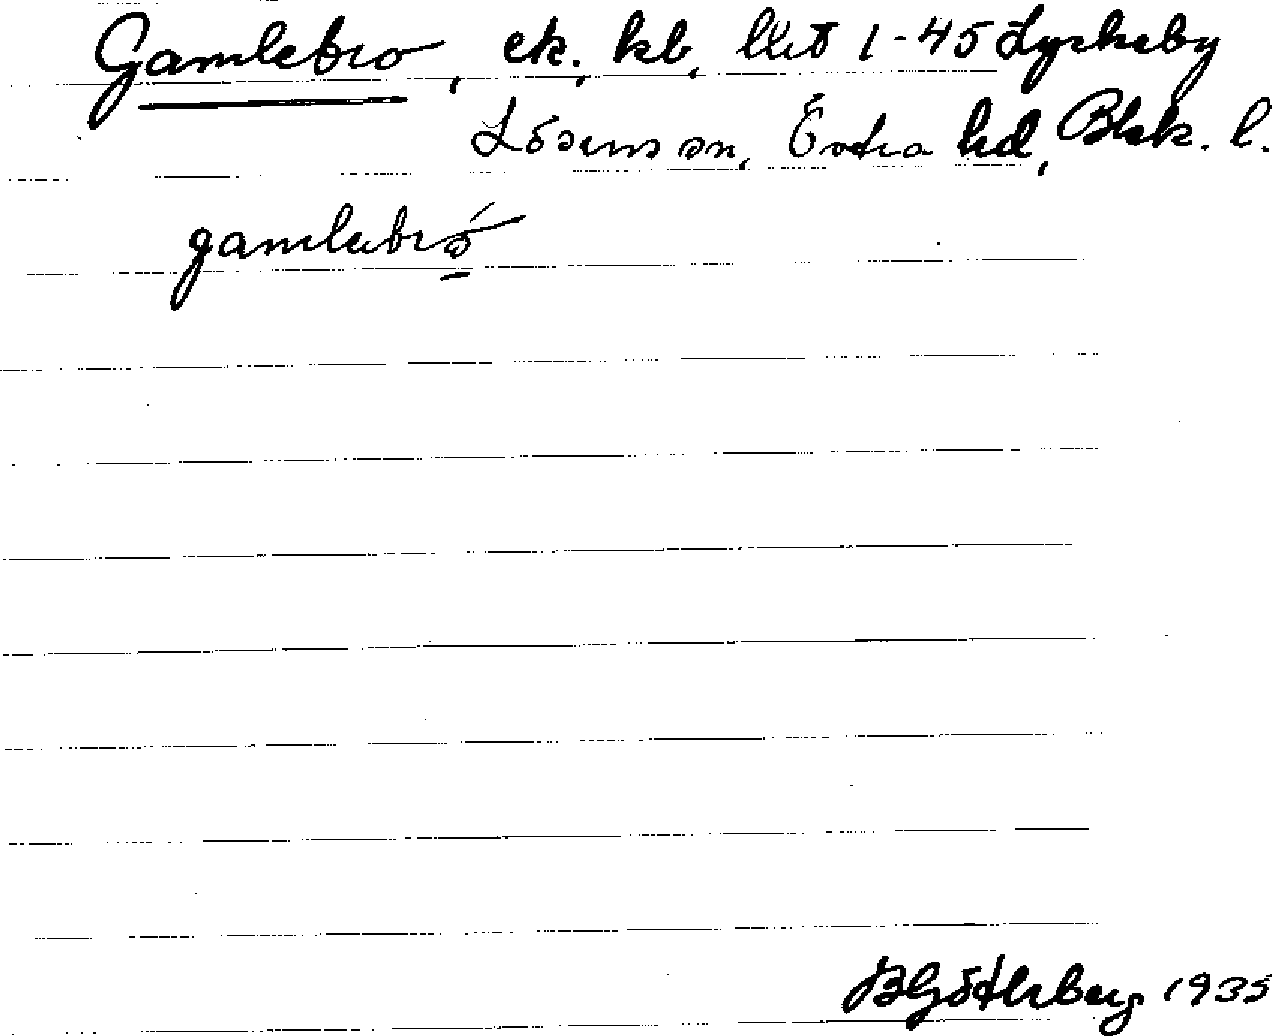 Gamlebro, ek. kb. litt 1-45 Lyckeby
Lösens sn, Östra hd, Blek. l.
gamlebró
B Götlherberg 1935